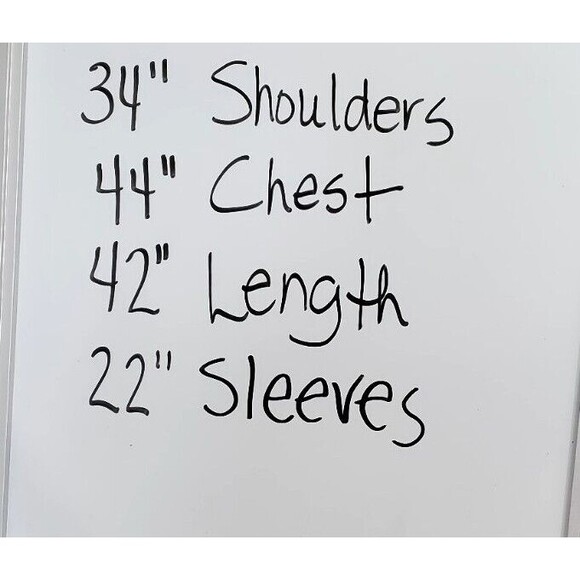 34" Shoulders
44" Chest
42" Length
22" Sleeves